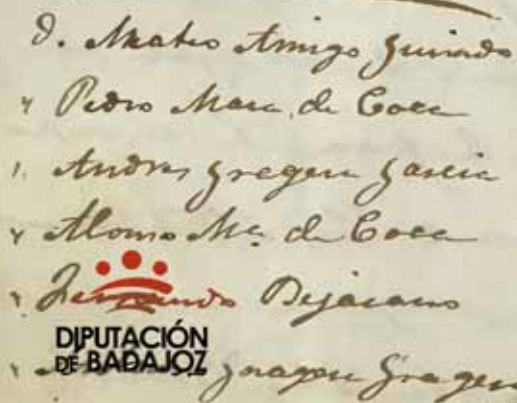 D. Mateo Amigo Guisado
" Pedro Mara de Coca
" Andres Gragera Garcia
" Alonso Mª de Coca
" Fernando Bejarano
DIPUTACIÓN
DE BADAJOZ
" Gragera Gragera